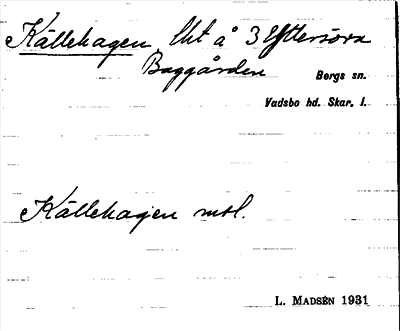 Källehagen, lht å 3 Ytterstöra
Baggården
Bergs sn.
Vadsbo hd. Skar. l.
Källehagen msl.
L. MADSÉN 1931